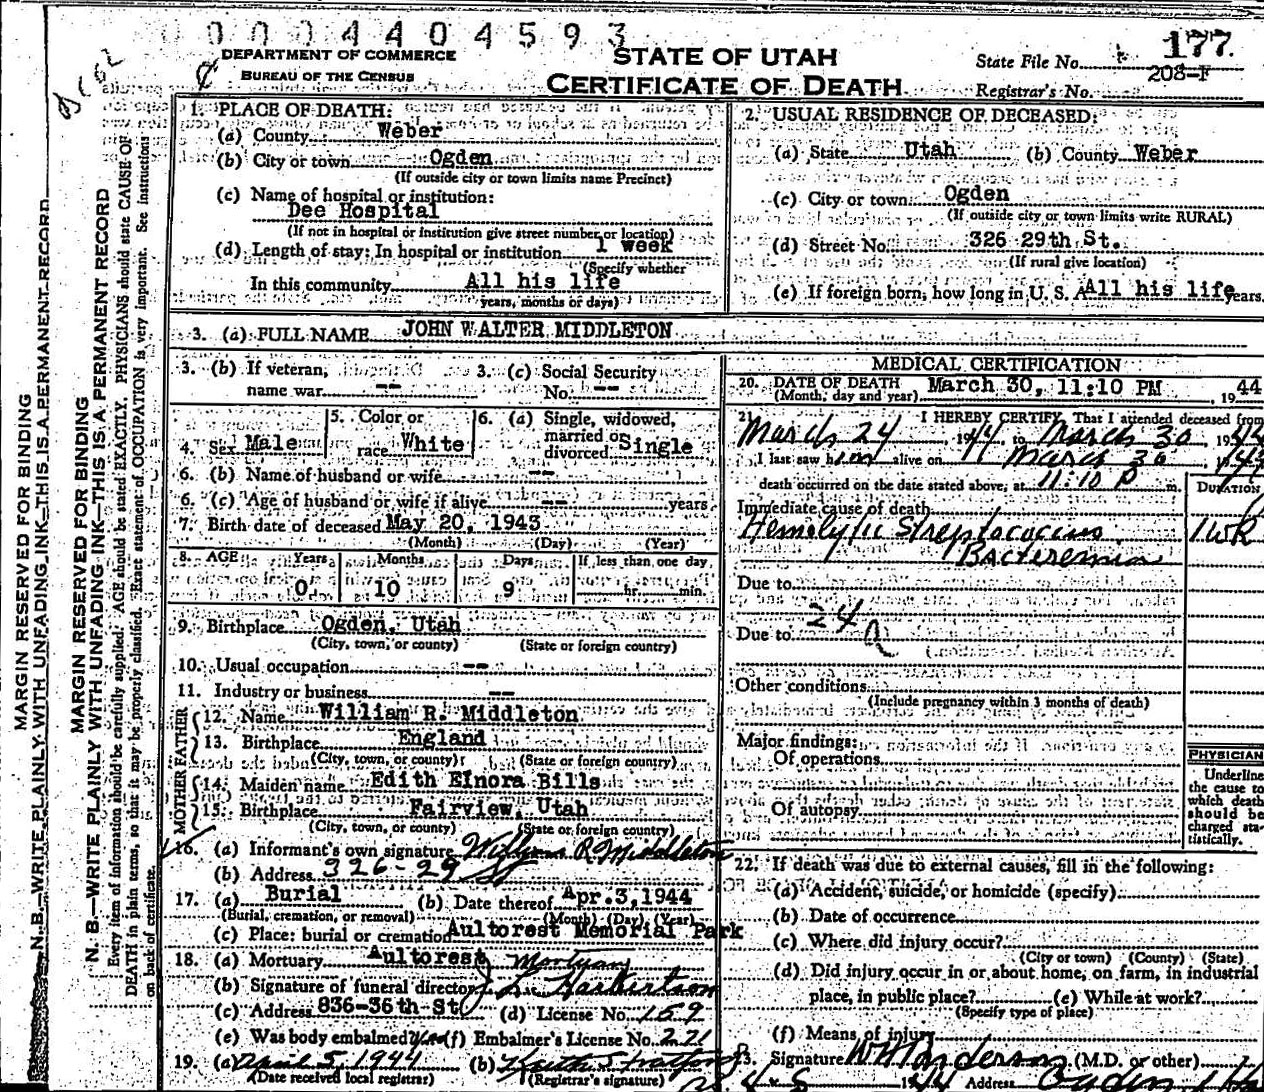 0004404593
DEPARTMENT OF COMMERCE
BUREAU OF THE CENSUS
STATE OF UTAH
CERTIFICATE OF DEATH
State File No. 177.
208-F
Registrar's No.
MARGIN RESERVED FOR BINDING
N. B.—WRITE PLAINLY WITH UNFADING INK—THIS IS A PERMANENT RECORD
MARGIN RESERVED FOR BINDING
N. B.—WRITE PLAINLY WITH UNFADING INK—THIS IS A PERMANENT RECORD
Every item of information should be carefully supplied. AGE should be stated EXACTLY. PHYSICIANS should state CAUSE OF
DEATH in plain terms, so that it may be properly classified. Exact statement of OCCUPATION is very important. See instructions
on back of certificate.
1. PLACE OF DEATH:
(a) County Weber
(b) City or town Ogden
(If outside city or town limits name Precinct)
(c) Name of hospital or institution:
Dee Hospital
(If not in hospital or institution give street number or location)
(d) Length of stay: In hospital or institution 1 week
(Specify whether
In this community All his life
years, months or days)
2. USUAL RESIDENCE OF DECEASED:
(a) State Utah (b) County Weber
(c) City or town Ogden
(If outside city or town limits write RURAL)
(d) Street No. 326 29th St.
(If rural give location)
(e) If foreign born, how long in U. S. A. All his life years.
3. (a) FULL NAME JOHN WALTER MIDDLETON
3. (b) If veteran, name war --
3. (c) Social Security No. --
4. Sex Male
5. Color or race White
6. (a) Single, widowed, married or divorced Single
6. (b) Name of husband or wife --
6. (c) Age of husband or wife if alive -- years
7. Birth date of deceased May 20, 1943
(Month) (Day) (Year)
8. AGE Years Months Days If less than one day
0 10 9 hr. min.
9. Birthplace Ogden, Utah
(City, town, or county) (State or foreign country)
10. Usual occupation --
11. Industry or business --
FATHER
12. Name William R. Middleton
13. Birthplace England
(City, town, or county) (State or foreign country)
MOTHER
14. Maiden name Edith Elnora Bills
15. Birthplace Fairview, Utah
(City, town, or county) (State or foreign country)
16. (a) Informant's own signature William R Middleton
(b) Address 326-29 St
17. (a) Burial (b) Date thereof Apr.3,1944
(Burial, cremation, or removal) (Month) (Day) (Year)
(c) Place: burial or cremation Aultorest Memorial Park
18. (a) Mortuary Aultorest Mortuary
(b) Signature of funeral director
(c) Address 836-36th St (d) License No. 159
(e) Was body embalmed (f) Embalmer's License No. 221
19. (a) April 5, 1944 (b)
(Date received local registrar) (Registrar's signature)
MEDICAL CERTIFICATION
20. DATE OF DEATH March 30, 11:10 PM, 1944
(Month, day and year)
21. I HEREBY CERTIFY, That I attended deceased from
March 24, 1944 to March 30, 1944
I last saw him alive on March 30, 1944
death occurred on the date stated above, at 11:10 P m.
DURATION
Immediate cause of death
Hemolytic Streptococcus 1 wk
Bacteremia
Due to
24
Due to
Other conditions
(Include pregnancy within 3 months of death)
Major findings:
Of operations
Of autopsy
PHYSICIAN
Underline
the cause to
which death
should be
charged sta-
tistically.
22. If death was due to external causes, fill in the following:
(a) Accident, suicide, or homicide (specify)
(b) Date of occurrence
(c) Where did injury occur?
(City or town) (County) (State)
(d) Did injury occur in or about home, on farm, in industrial
place, in public place? (e) While at work?
(Specify type of place)
(f) Means of injury
23. Signature (M.D. or other)
1944 Address Ogden